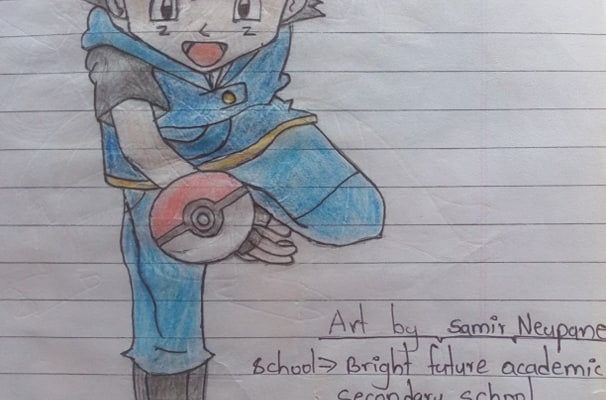 Art by Samir Neupane
School⇒ Bright future academic
secondary school